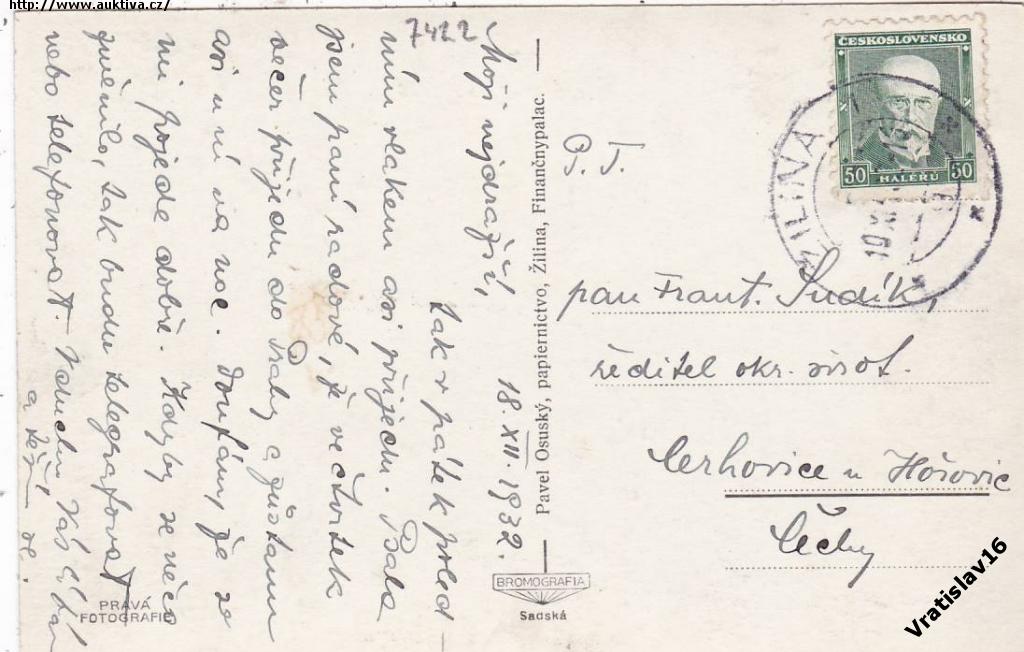 http://www.auktiva.cz/
7422
18.XII.1932.
Moji nejdražší,
tak v pátek poled-
ním vlakem asi přijedu. Psala
jsem paní radové, že ve čtvrtek
večer přijedu do Prahy a zůstanu
asi u ní na noc. Doufám, že se
mi pojede dobře. Kdyby se něco
změnilo, tak budu telegrafovat
nebo telefonovat. Vás líbá
a těší se.
Pavel Osuský, papiernictvo, Žilina, Finančnypalac.
BROMOGRAFIA
Sadská
PRAVÁ
FOTOGRAFIE
ČESKOSLOVENSKO
50 HALÉŘŮ 50
ŽILINA
P. T.
pan Frant. Sudík,
ředitel okr. sirot.
Cerhovice u Hořovic
Čechy
Vratislav16